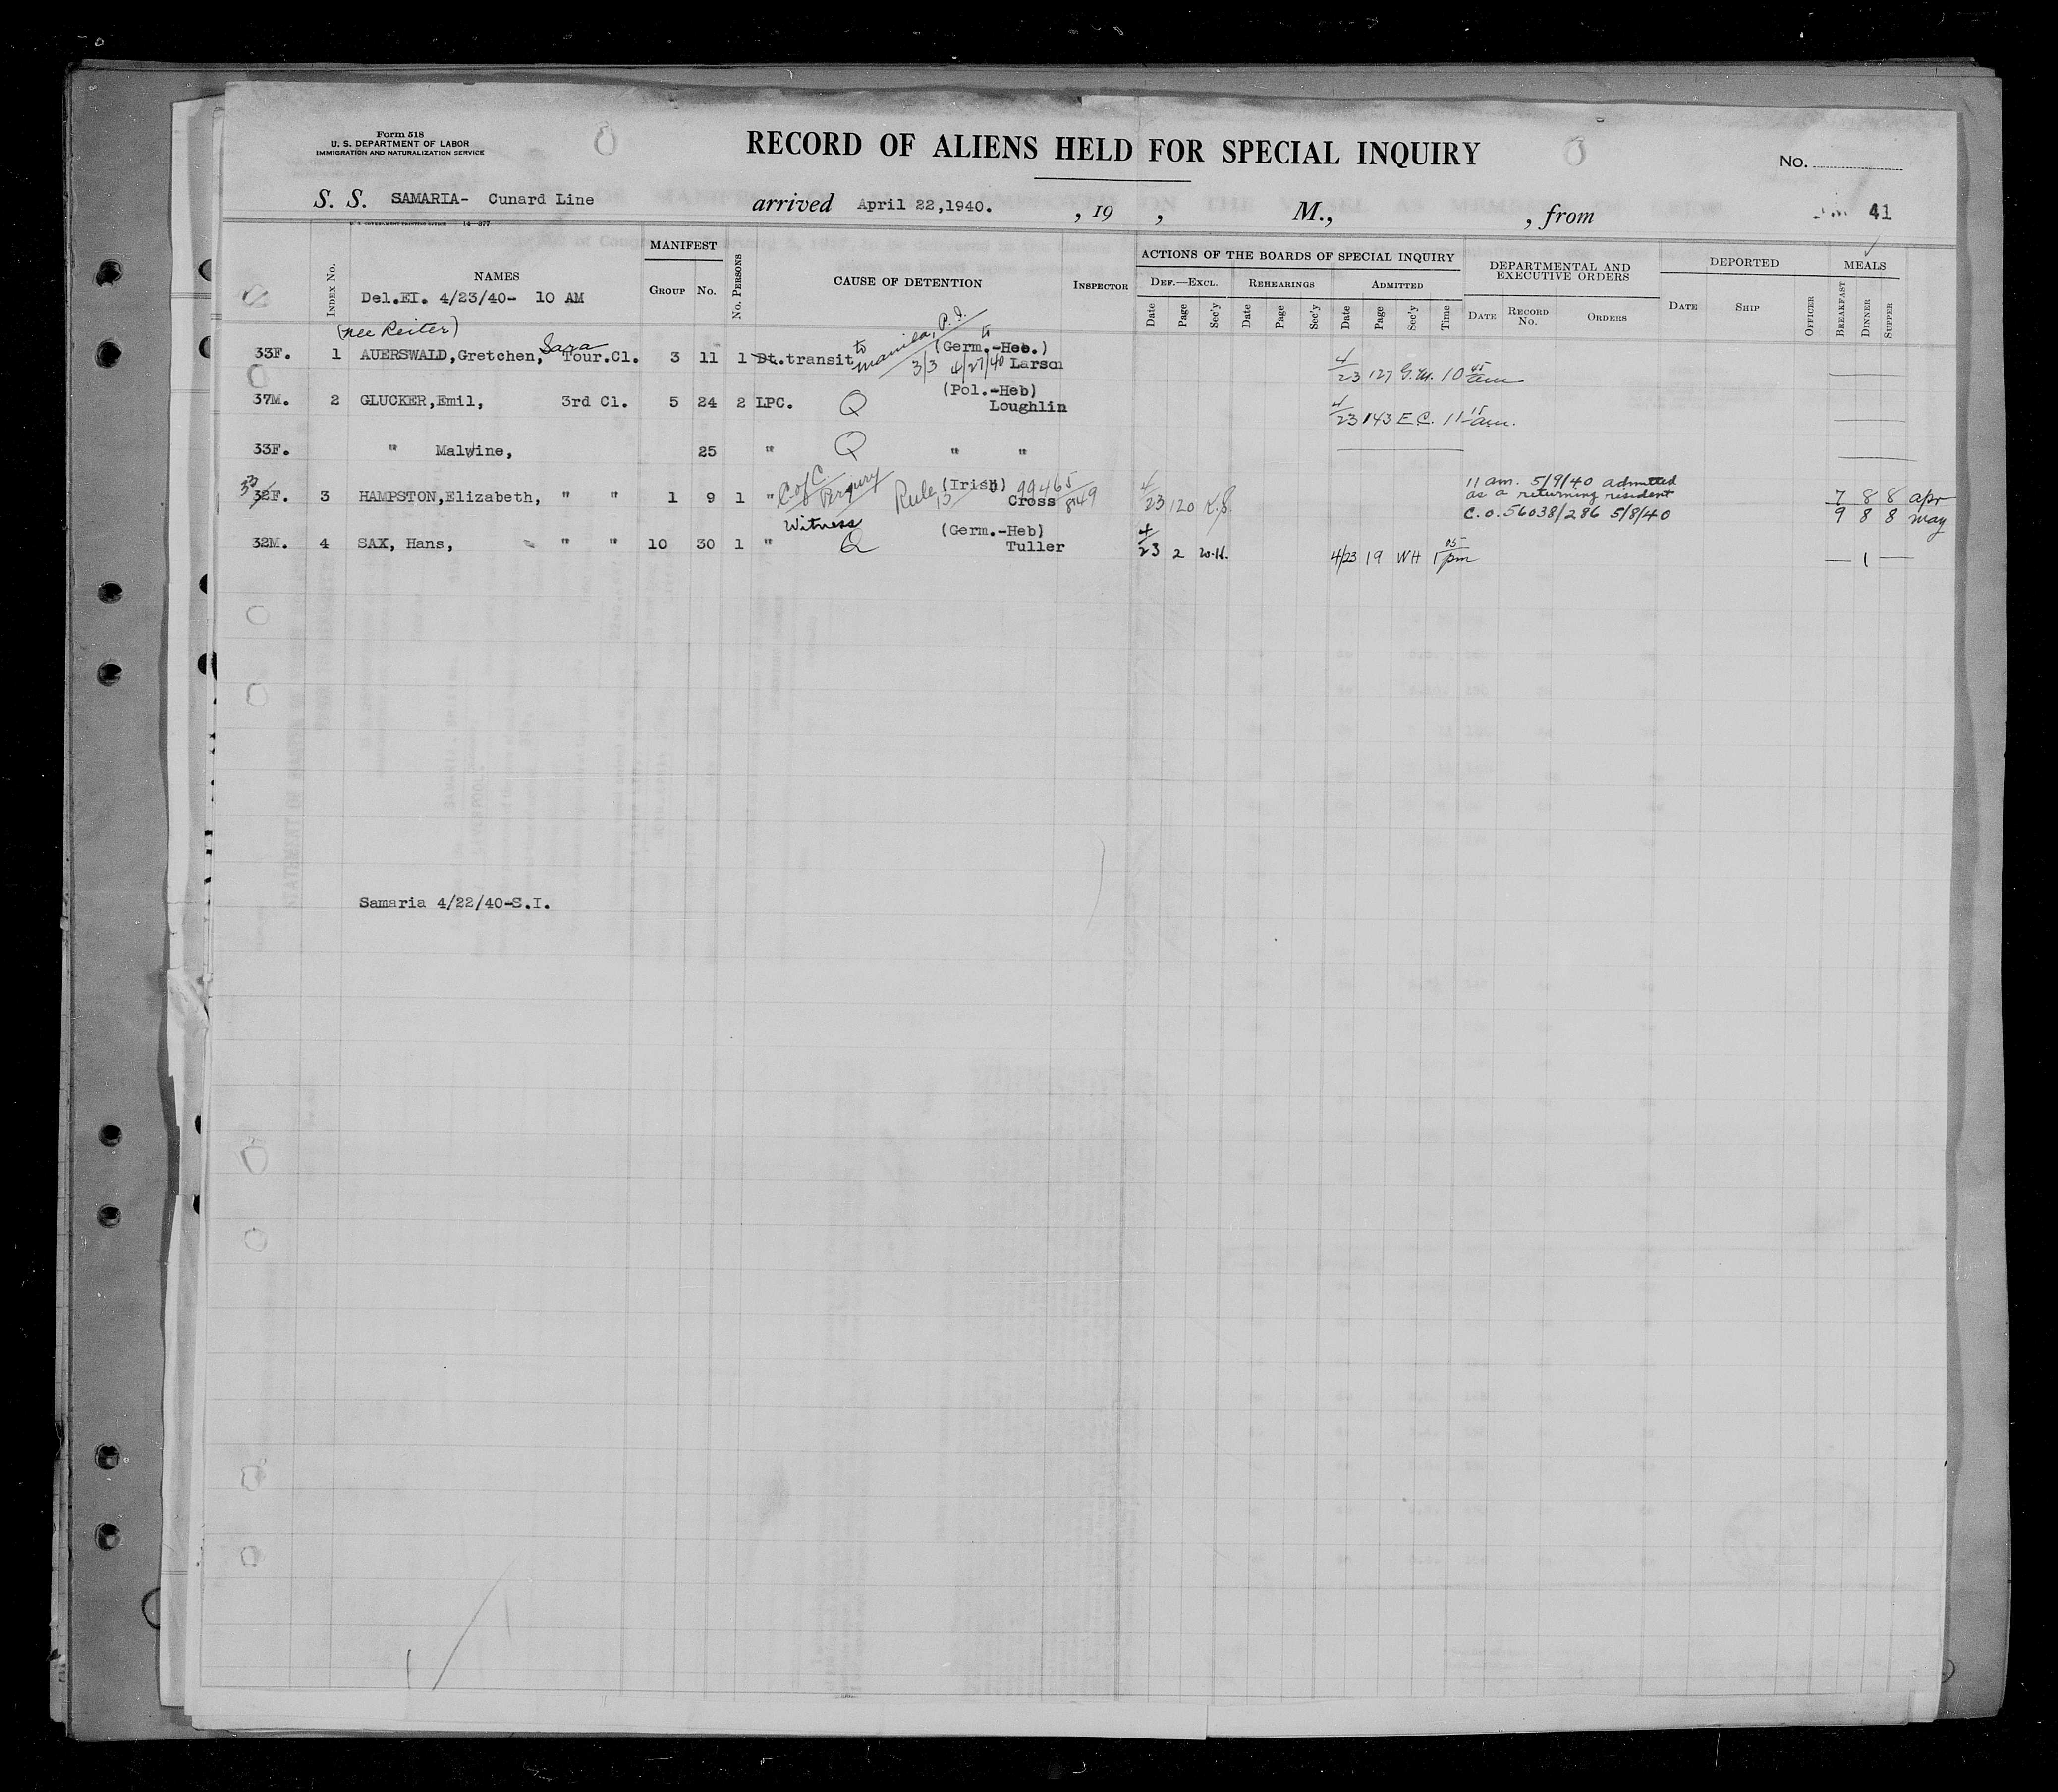 Form 518
U. S. DEPARTMENT OF LABOR
IMMIGRATION AND NATURALIZATION SERVICE
RECORD OF ALIENS HELD FOR SPECIAL INQUIRY
No.
S. S. SAMARIA- Cunard Line arrived April 22,1940. , 19 , M., , from 41
U. S. GOVERNMENT PRINTING OFFICE 14-377
Index No. NAMES MANIFEST Group No. No. Persons CAUSE OF DETENTION Inspector
ACTIONS OF THE BOARDS OF SPECIAL INQUIRY
Def.—Excl. Rehearings Admitted
Date Page Sec'y Date Page Sec'y Date Page Sec'y Time
DEPARTMENTAL AND EXECUTIVE ORDERS
Date Record No. Orders
DEPORTED
Date Ship Officer
MEALS
Breakfast Dinner Supper
Del.EI. 4/23/40- 10 AM
(nee Reiter) to Manila, P.I.
33F. 1 AUERSWALD,Gretchen, Sara Tour.Cl. 3 11 1 Dt.transit (Germ.-Heb.) 3/3 to 4/27/40 Larson 4/23 127 G.M. 10 45 am
37M. 2 GLUCKER,Emil, 3rd Cl. 5 24 2 LPC. Q (Pol.-Heb) Loughlin 4/23 143 E C. 11 15 am.
33F. " Malwine, 25 " Q " "
33 32F. 3 HAMPSTON,Elizabeth, " " 1 9 1 " C of C Perjury Rule 13 (Irish) 99465/849 Cross 4/23 120 K.S. 11 am. 5/9/40 admitted
as a returning resident
C.O. 56038/286 5/8/40
7 8 8 apr
9 8 8 may
Witness
32M. 4 SAX, Hans, " " 10 30 1 " Q (Germ.-Heb) Tuller 4/23 2 W.H. 4/23 19 WH 1 05 pm — 1 —
Samaria 4/22/40-S.I.